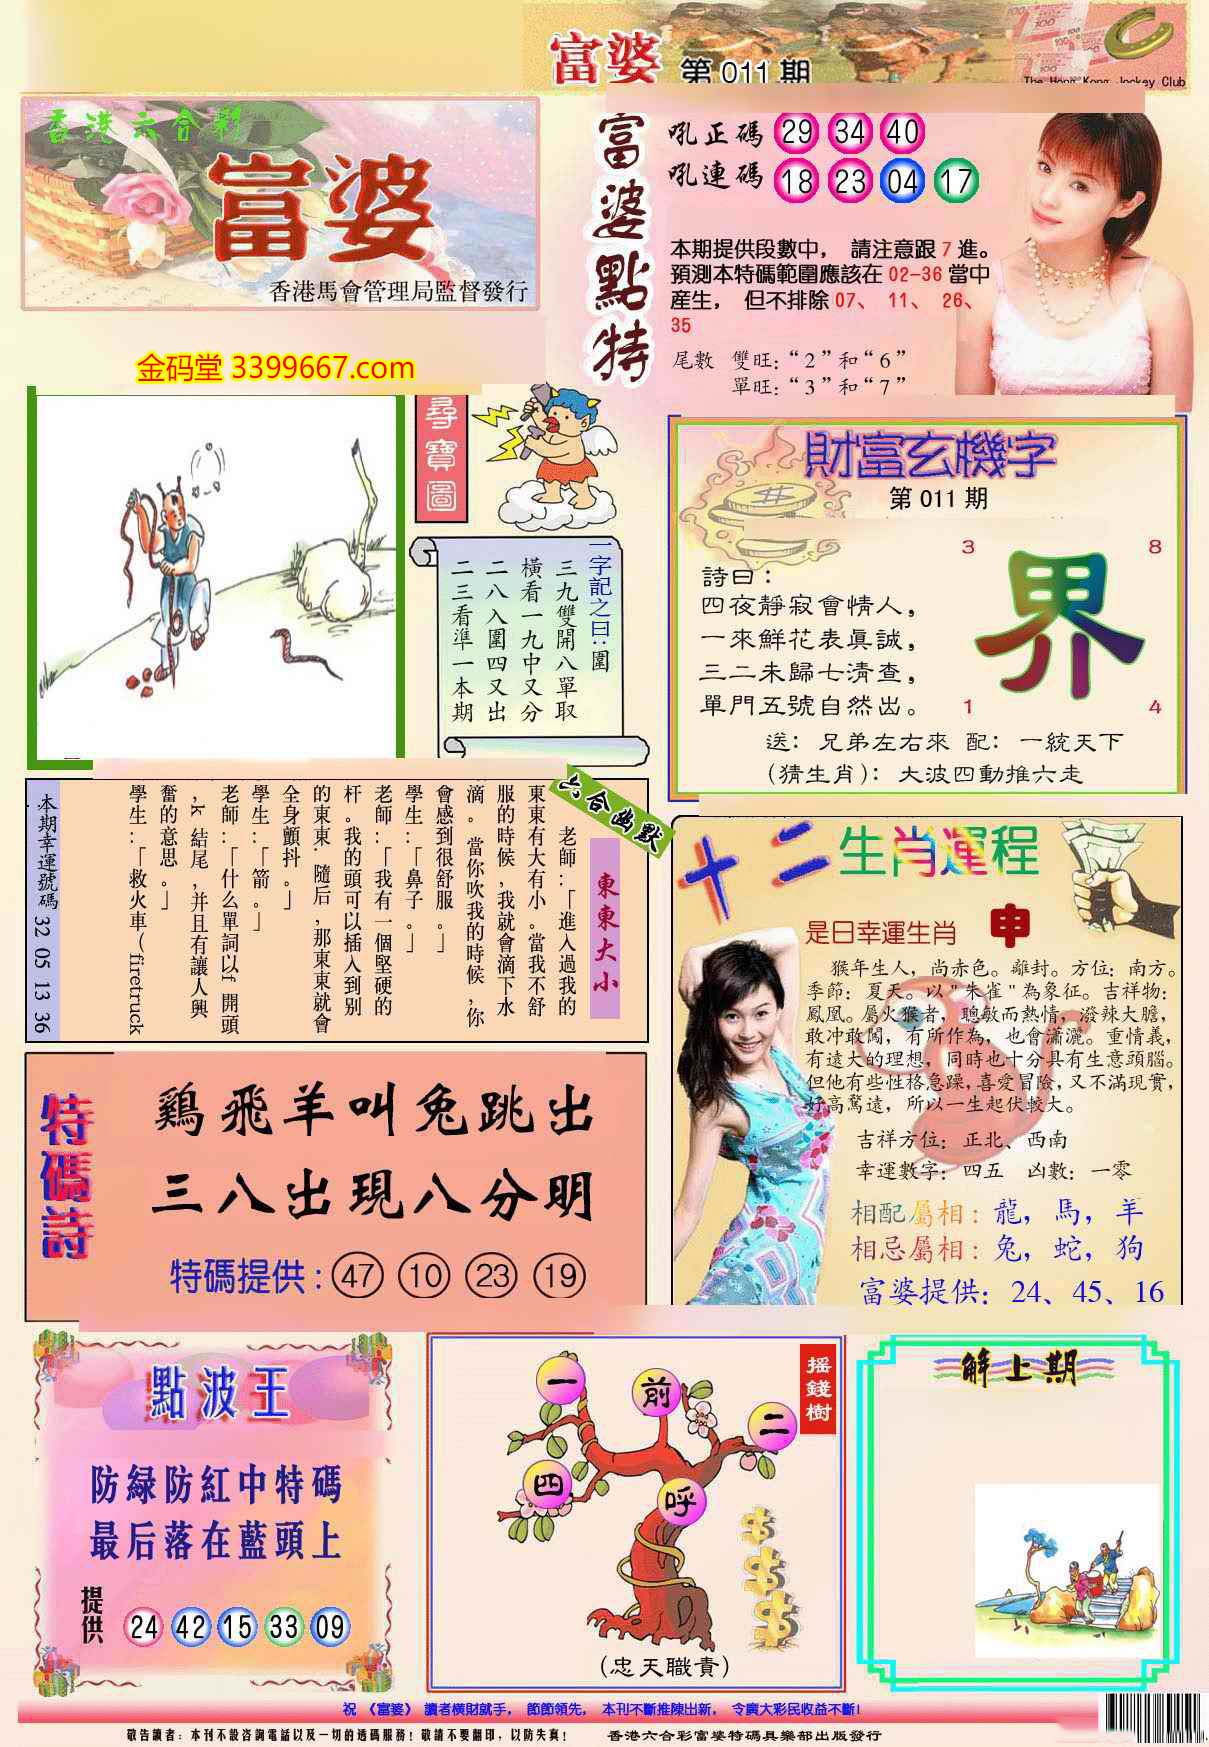 富婆 第 011 期
The Hong Kong Jockey Club
香港六合彩
富婆
香港馬會管理局監督發行
金码堂 3399667.com
富婆點特
吼正碼 29 34 40
吼連碼 18 23 04 17
本期提供段數中， 請注意跟 7 進。
預測本特碼範圍應該在 02-36 當中
産生， 但不排除 07、 11、 26、
35
尾數 雙旺：“2”和“6”
單旺：“3”和“7”
尋寶圖
一字記之曰：圍
三九雙開八單取
橫看一九中又分
二八入圍四又出
二三看準一本期
財富玄機字
第 011 期
3 8
界
1 4
詩曰：
四夜靜寂會情人，
一來鮮花表真誠，
三二未歸七清查，
單門五號自然出。
送： 兄弟左右來 配： 一統天下
（猜生肖）：大波四動推六走
六合幽默
東東大小
老師：「進入過我的
東東有大有小。當我不舒
服的時候，我就會滴下水
滴。當你吹我的時候，你
會感到很舒服。」
學生：「鼻子。」
老師：「我有一個堅硬的
杆。我的頭可以插入到别
的東東. 隨后，那東東就會
全身顫抖。」
學生：「箭。」
老師：「什么單詞以f 開頭
，k 結尾，并且有讓人興
奮的意思。」
學生：「救火車（firetruck
本期幸運號碼 32 05 13 36
十二生肖運程
是日幸運生肖 申
猴年生人，尚赤色。離封。方位：南方。
季節：夏天。以"朱雀"為象征。吉祥物：
鳳凰。屬火猴者，聰敏而熱情，潑辣大膽，
敢冲敢闖，有所作為，也會瀟灑。重情義，
有遠大的理想，同時也十分具有生意頭腦。
但他有些性格急躁，喜愛冒險，又不滿現實，
好高騖遠，所以一生起伏較大。
吉祥方位：正北、西南
幸運數字：四五 凶數：一零
相配屬相：龍，馬，羊
相忌屬相：兔，蛇，狗
富婆提供：24、45、16
特碼詩
鷄飛羊叫兔跳出
三八出現八分明
特碼提供：47 10 23 19
點波王
防緑防紅中特碼
最后落在藍頭上
提供 24 42 15 33 09
摇錢樹
一 前 二
四 呼
（忠天職責）
解上期
祝 《富婆》 讀者横財就手， 節節領先， 本刊不斷推陳出新， 令廣大彩民收益不斷！
敬告讀者：本刊不設咨詢電話以及一切的透碼服務！敬請不要翻印，以防失真！ 香港六合彩富婆特碼具樂部出版發行